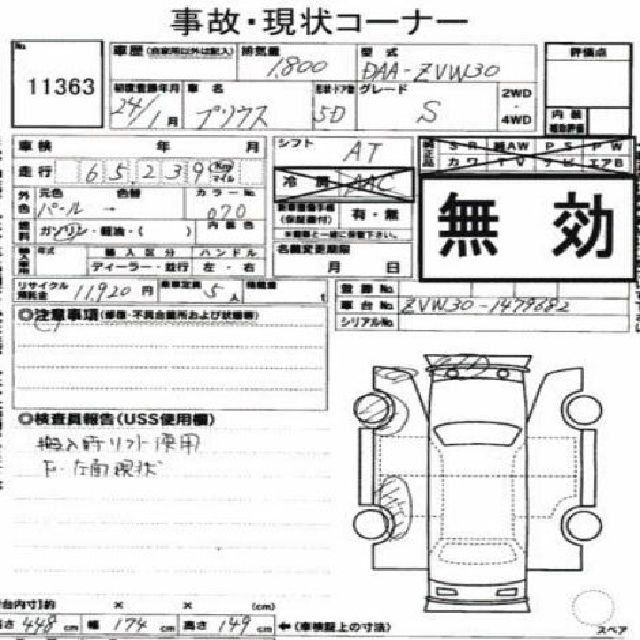 事故・現状コーナー
No.
11363
車歴(自家用以外は記入) 排気量 1,800 型式 DAA-ZVW30 評価点
初度登録年月 24/1月 車名 プリウス 形状・ドア数 5D グレード S 2WD・4WD 内装
車検 年 月 シフト AT
SR AW PS PW
カワ TV ナビ エアB
走行 65,239 Km マイル 冷房 AAC
外色 元色 パール 色替 カラーNo. 070 内装色
(保証書付) 有・無
無効
燃料 ガソリン・軽油・( )
年式 輸入区分 ハンドル
ディーラー・並行 左・右
名義変更期限 月 日
リサイクル預託金 11,920円 乗車定員 5人 積載量 t
登録No.
車台No. ZVW30-1479682
シリアルNo.
◎注意事項(修復・不具合箇所および状態等)
◎検査員報告(USS使用欄)
搬入時リフト使用
F・左面現状
台内寸)約 × × (cm)
長さ 448cm 幅 174cm 高さ 149cm ←(車検証上の寸法)
スペア